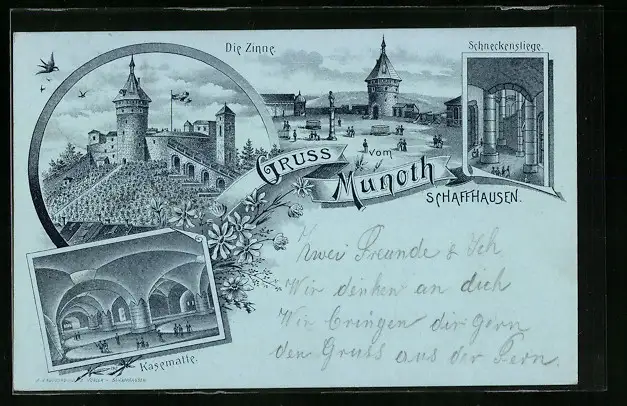 Die Zinne.
Schneckenstiege.
Gruss vom Munoth
SCHAFFHAUSEN.
Zwei Freunde & Ich
Wir denken an dich
Wir bringen dir gern
den Gruss aus der Fern.
Kasematte.